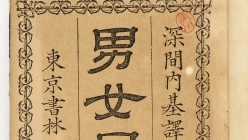 深間内基譯
男女
東京書林